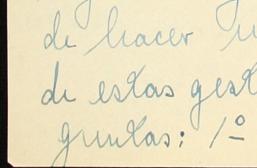 de hacer
de estas gest
guntas: 1º